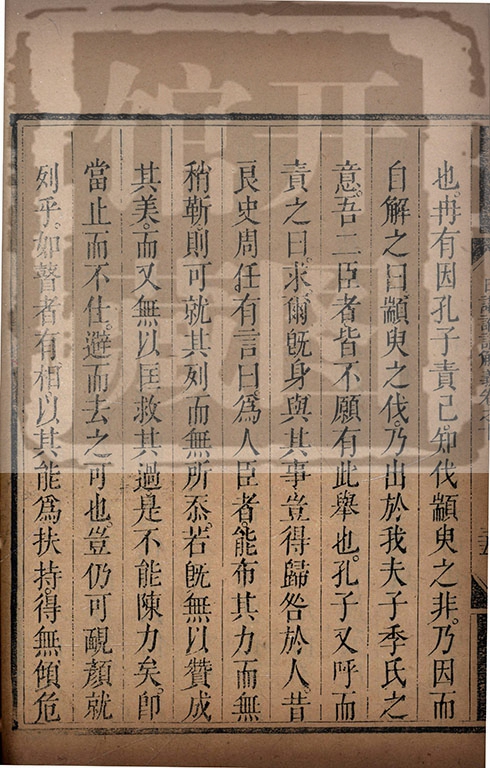 也。冉有因孔子責己。知伐顓臾之非。乃因而
自解之曰。顓臾之伐。乃出於我夫子季氏之
意。吾二臣者皆不願有此舉也。孔子又呼而
責之曰。求。爾旣身與其事。豈得歸咎於人。昔
良史周任有言曰。爲人臣者。能布其力而無
稍靳。則可就其列而無所忝。若旣無以贊成
其美。而又無以匡救其過。是不能陳力矣。卽
當止而不仕。避而去之可也。豈仍可覥顏就
列乎。如瞽者有相。以其能爲扶持。得無傾危